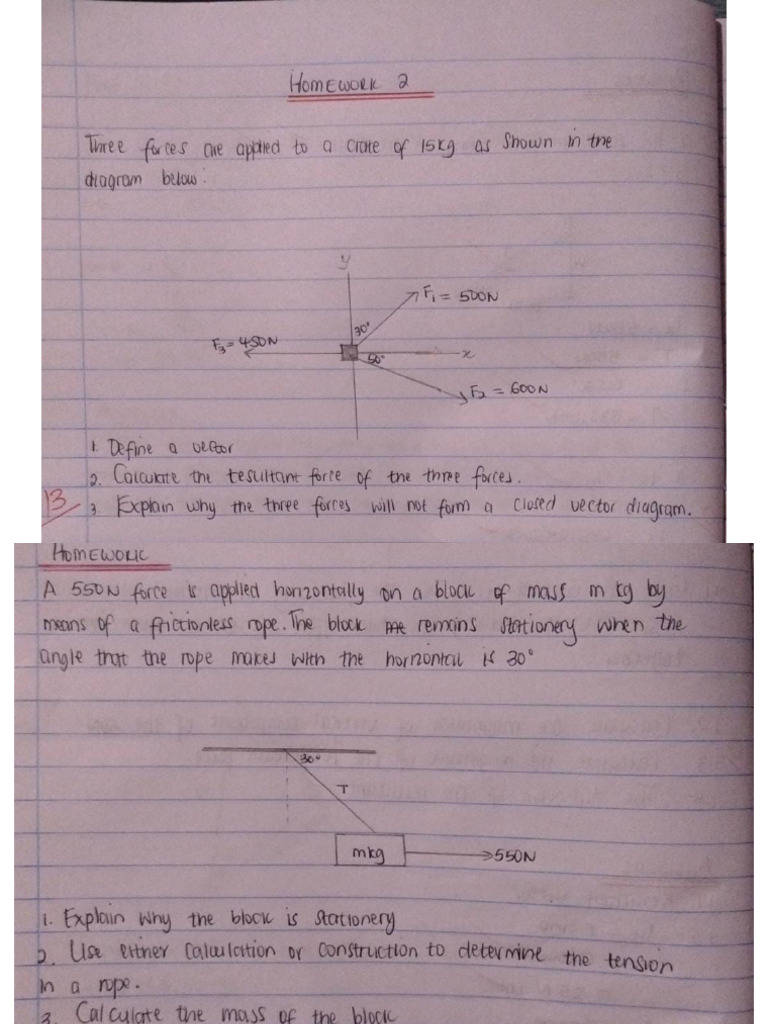 HOMEWORK 2
Three forces are applied to a crate of 15kg as shown in the
diagram below:
y
F1 = 500N
30°
F3 = 450N
x
50°
F2 = 600N
1. Define a vector
2. Calculate the resultant force of the three forces.
13
3 Explain why the three forces will not form a closed vector diagram.
HOMEWORK
A 550N force is applied horizontally on a block of mass m kg by
means of a frictionless rope. The block remains stationery when the
angle that the rope makes with the horizontal is 30°
30°
T
mkg
550N
1. Explain why the block is stationery
2. Use either calculation or construction to determine the tension
in a rope.
3. Calculate the mass of the block